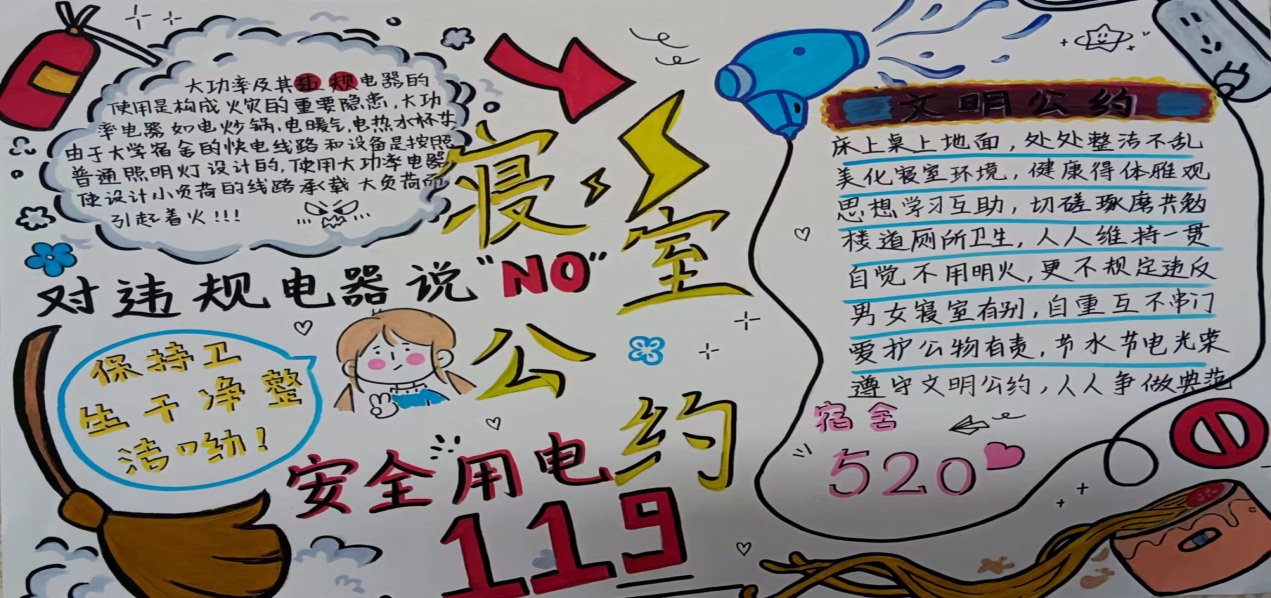 大功率及其违规电器的
使用是构成火灾的重要隐患,大功
率电器如电炒锅,电暖气,电热水杯等
由于大学宿舍的快电线路和设备是按照
普通照明灯设计的,使用大功率电器
使设计小负荷的线路承载大负荷而
引起着火!!!
对违规电器说"NO"
保持卫
生干净整
洁呦!
寝室
公约
安全用电
119
文明公约
床上桌上地面,处处整洁不乱
美化寝室环境,健康得体雅观
思想学习互助,切磋琢磨共勉
楼道厕所卫生,人人维持一贯
自觉不用明火,更不规定违反
男女寝室有别,自重互不串门
爱护公物有责,节水节电光荣
遵守文明公约,人人争做典范
宿舍
520